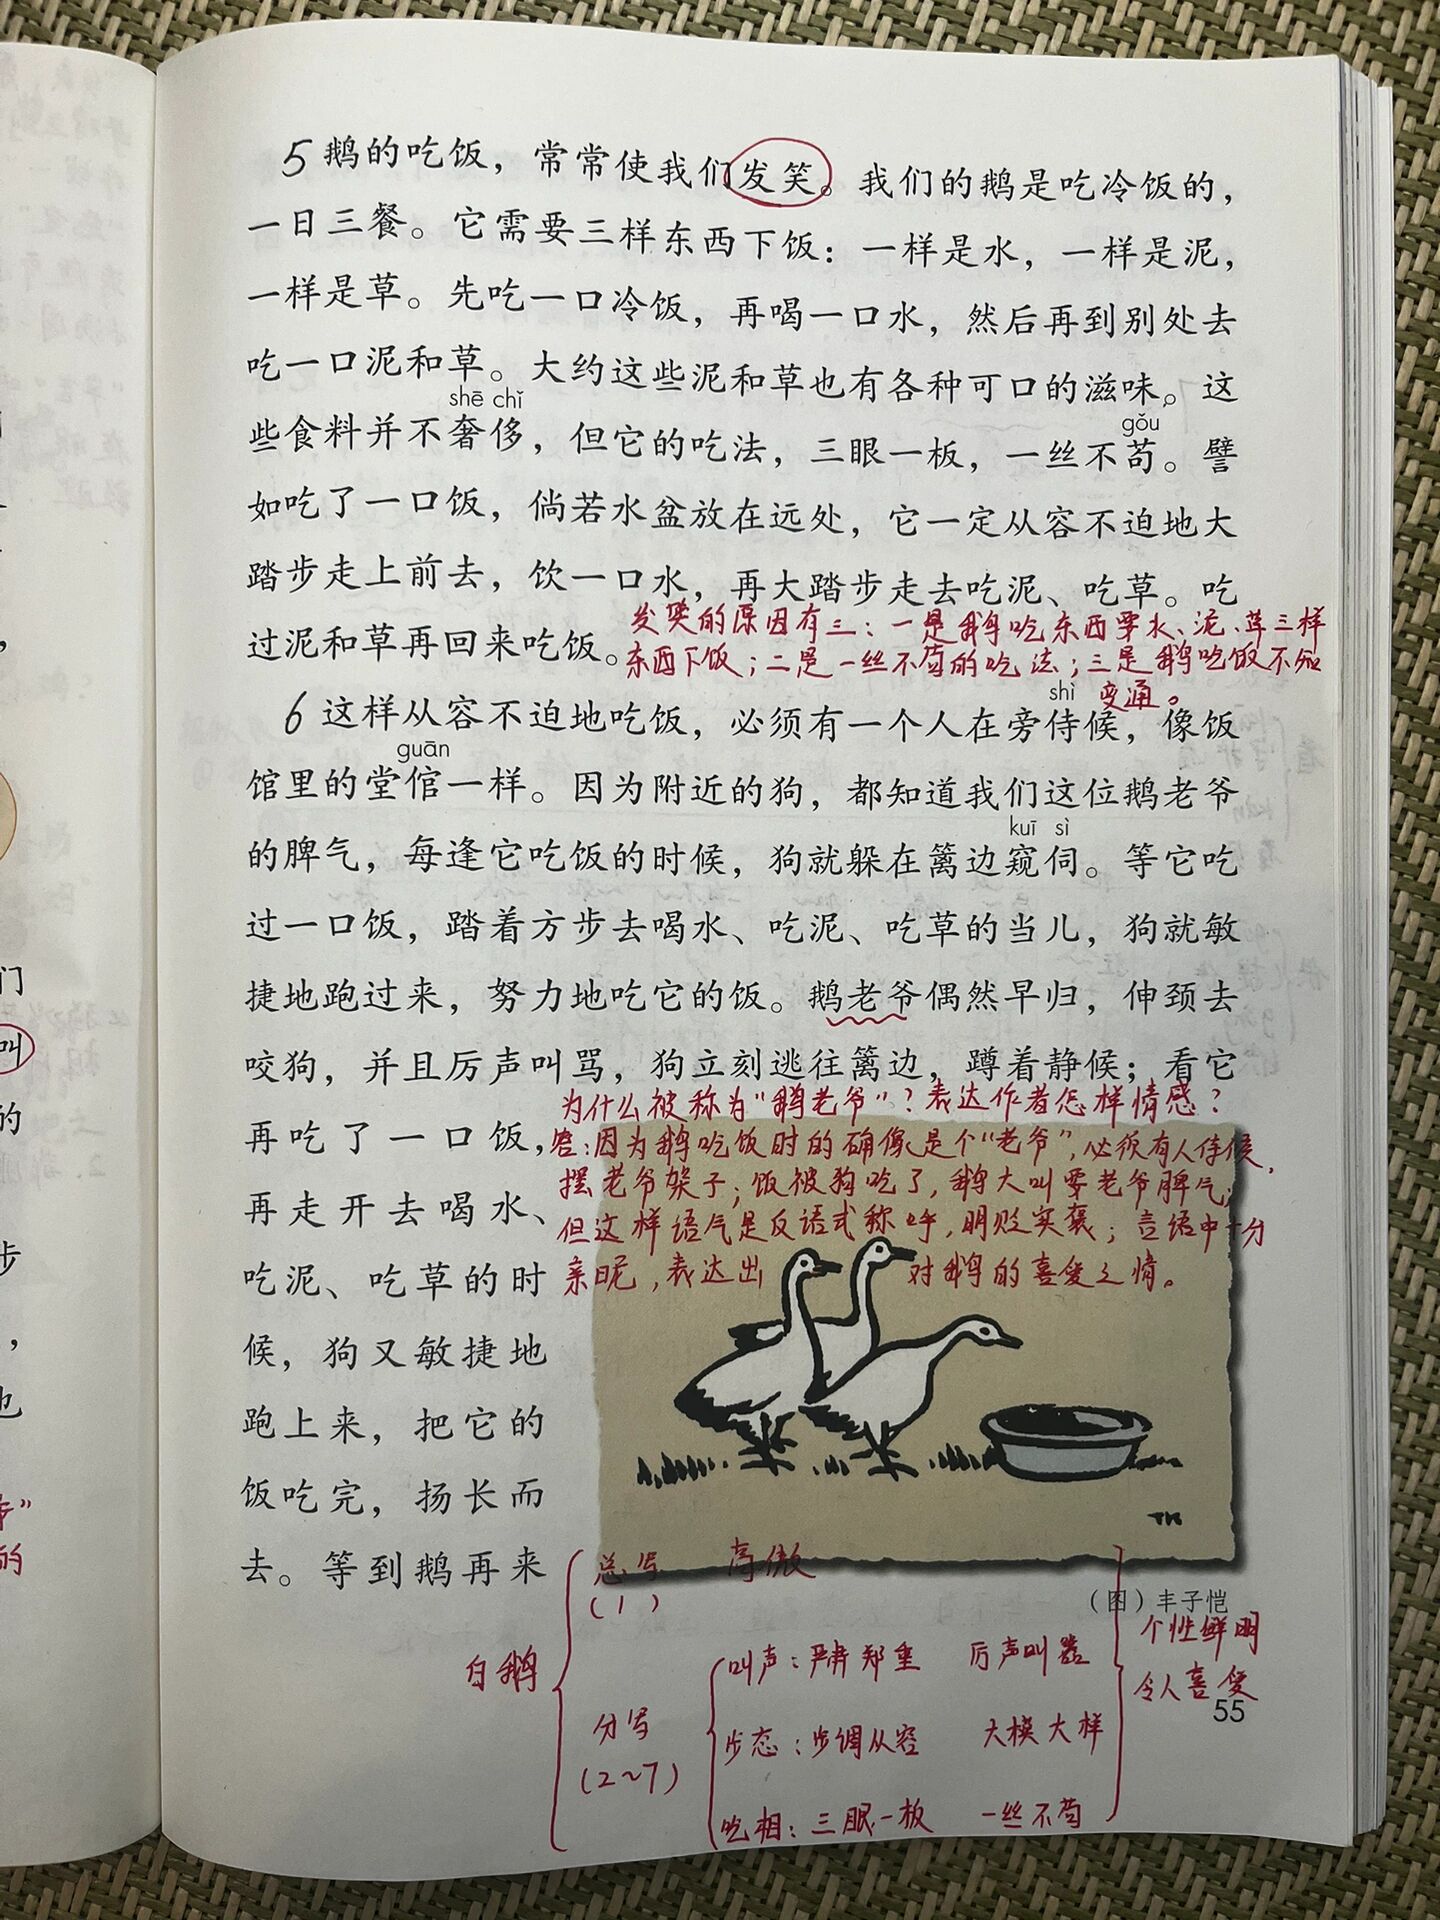 5 鹅的吃饭，常常使我们发笑。我们的鹅是吃冷饭的，
一日三餐。它需要三样东西下饭：一样是水，一样是泥，
一样是草。先吃一口冷饭，再喝一口水，然后再到别处去
吃一口泥和草。大约这些泥和草也有各种可口的滋味。这
shē chǐ
gǒu
些食料并不奢侈，但它的吃法，三眼一板，一丝不苟。譬
如吃了一口饭，倘若水盆放在远处，它一定从容不迫地大
踏步走上前去，饮一口水，再大踏步走去吃泥、吃草。吃
过泥和草再回来吃饭。
发笑的原因有三：一是鹅吃东西要水、泥、草三样
东西下饭；二是一丝不苟的吃法；三是鹅吃饭不知
变通。
shì
6 这样从容不迫地吃饭，必须有一个人在旁侍候，像饭
guān
馆里的堂倌一样。因为附近的狗，都知道我们这位鹅老爷
kuī sì
的脾气，每逢它吃饭的时候，狗就躲在篱边窥伺。等它吃
过一口饭，踏着方步去喝水、吃泥、吃草的当儿，狗就敏
捷地跑过来，努力地吃它的饭。鹅老爷偶然早归，伸颈去
咬狗，并且厉声叫骂，狗立刻逃往篱边，蹲着静候；看它
再吃了一口饭，
再走开去喝水、
吃泥、吃草的时
候，狗又敏捷地
跑上来，把它的
饭吃完，扬长而
去。等到鹅再来
为什么被称为“鹅老爷”？表达作者怎样情感？
答：因为鹅吃饭时的确像是个“老爷”，必须有人侍候，
摆老爷架子；饭被狗吃了，鹅大叫要老爷脾气；
但这样语气是反语式称呼，明贬实褒；言语中十分
亲昵，表达出对鹅的喜爱之情。
TK
（图）丰子恺
白鹅
总写
(1)
高傲
分写
(2~7)
叫声：严肃郑重 厉声叫嚣
步态：步调从容 大模大样
吃相：三眼一板 一丝不苟
个性鲜明
令人喜爱
55
们
叫
的
步
，
也
的